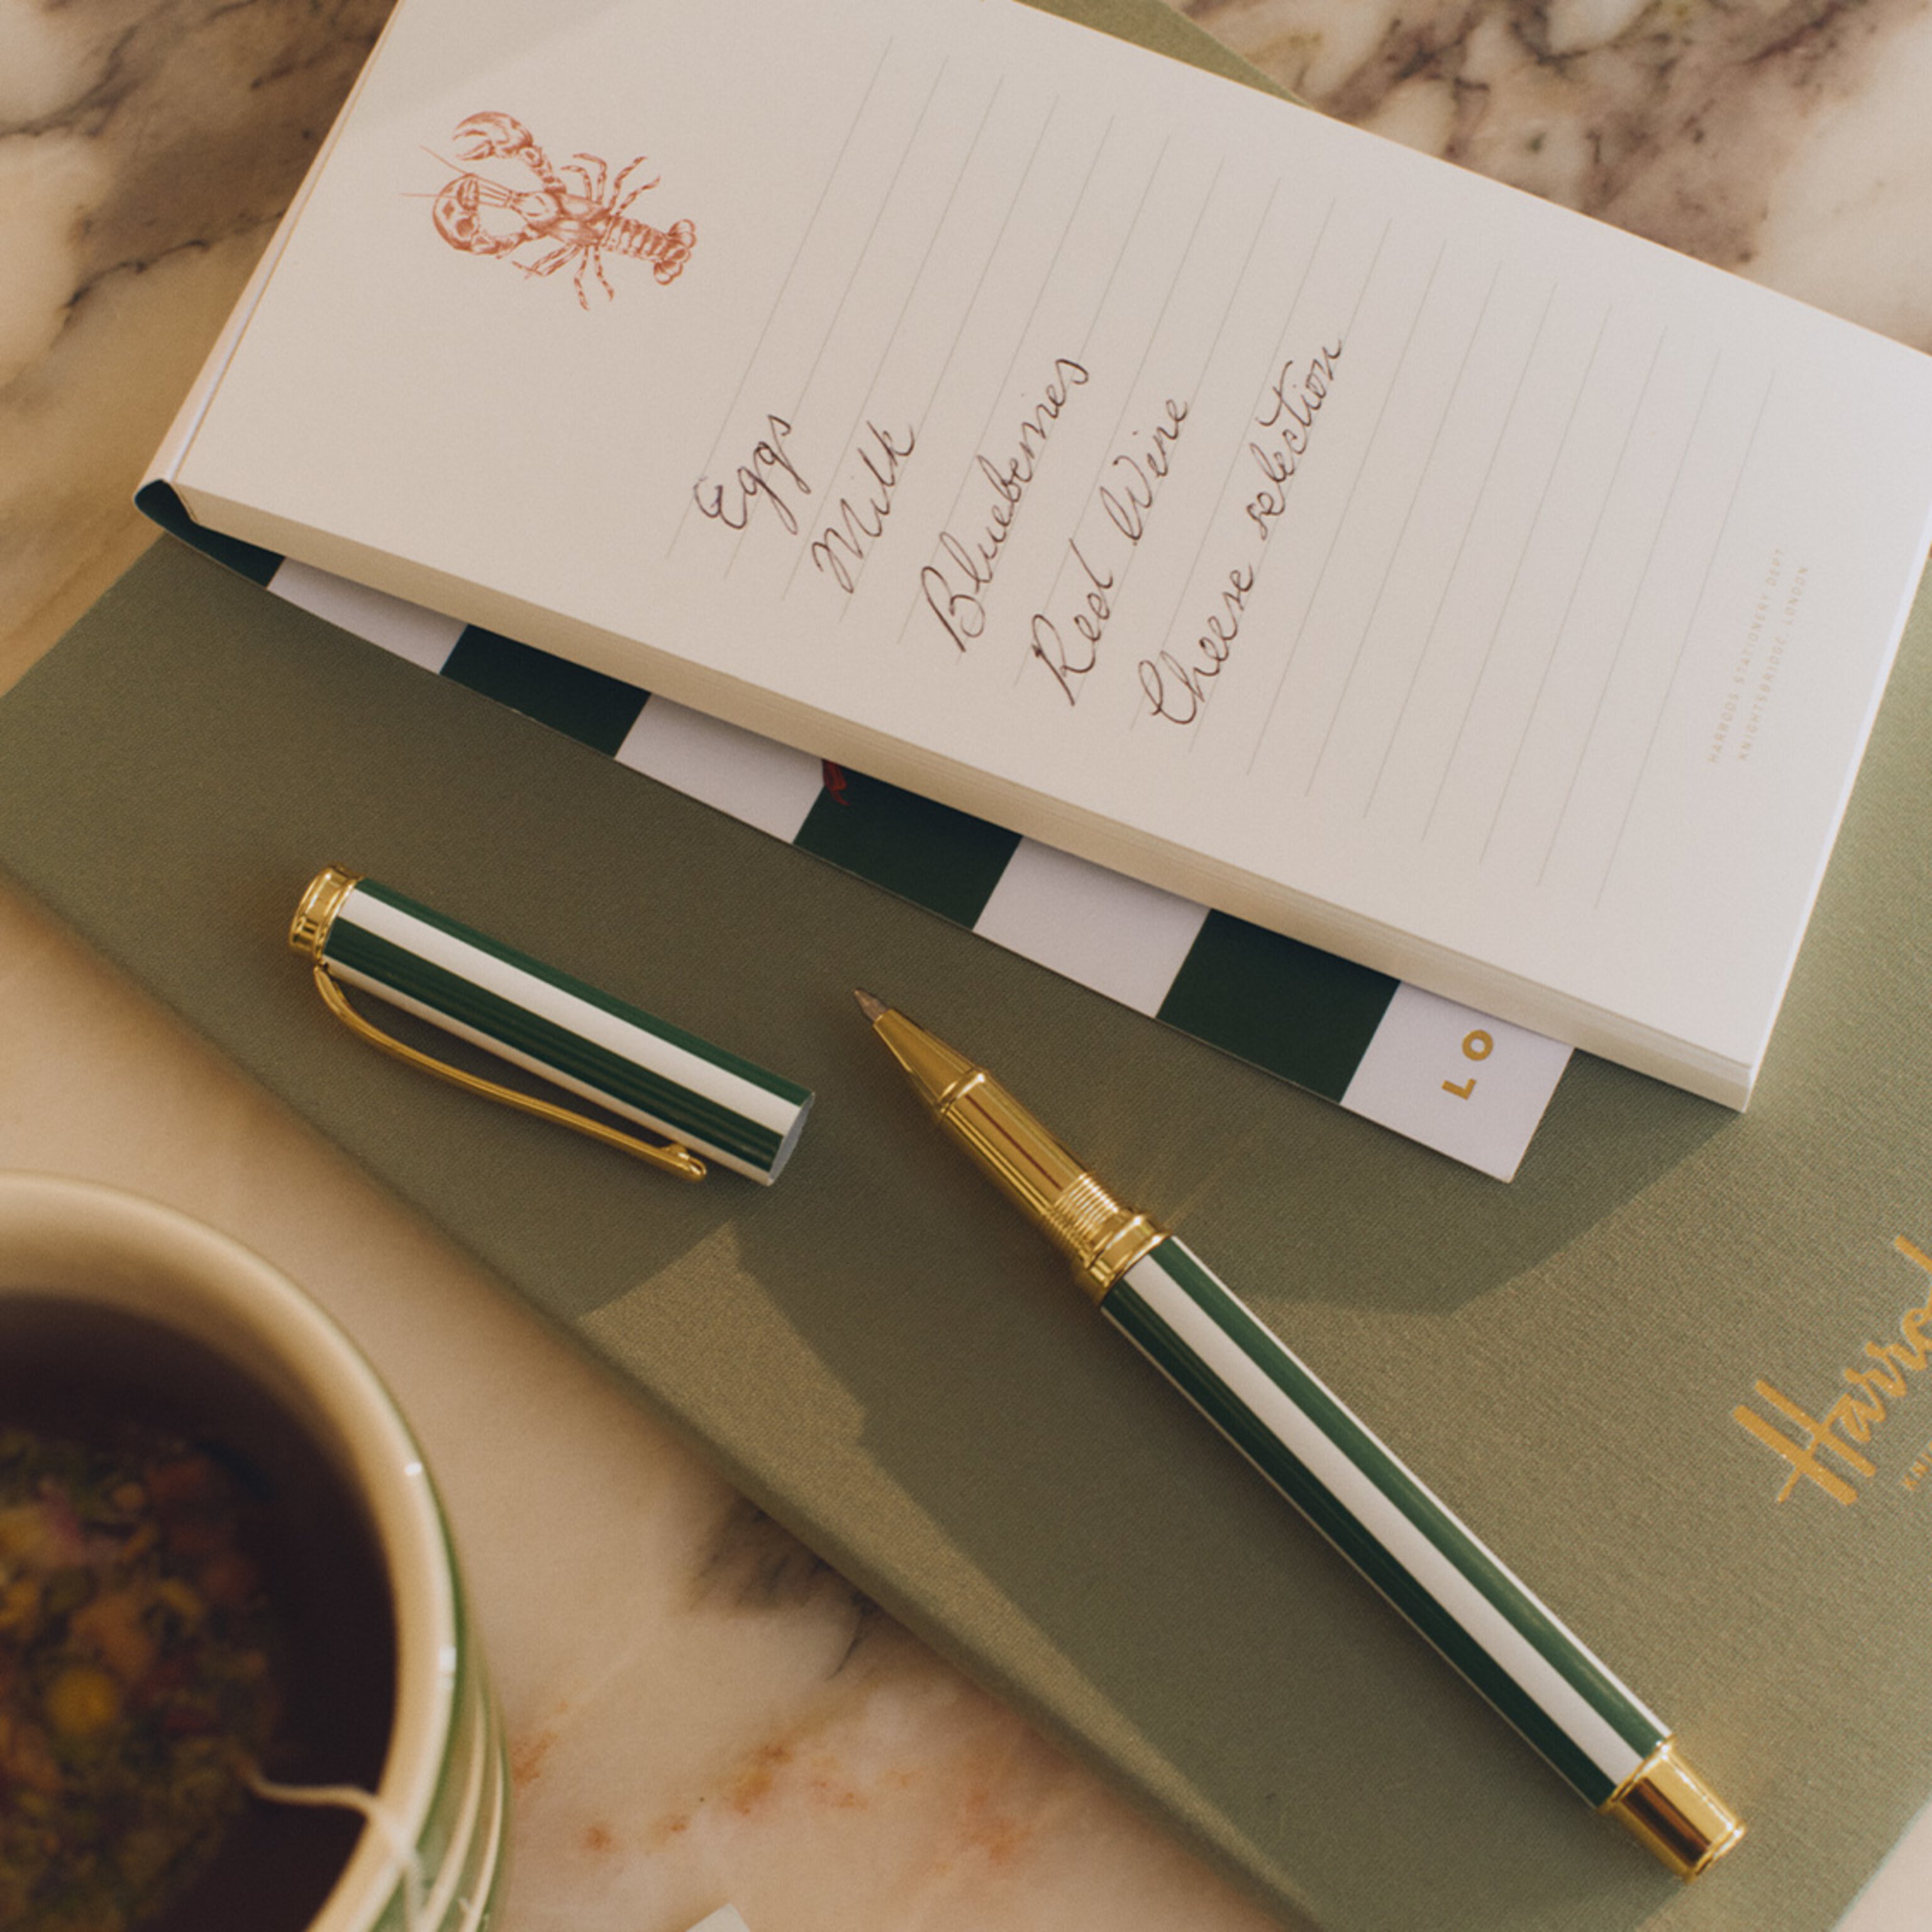 Eggs
Milk
Blueberries
Red Wine
Cheese selection
HARRODS STATIONERY DEPT
KNIGHTSBRIDGE, LONDON
LO
Harrod